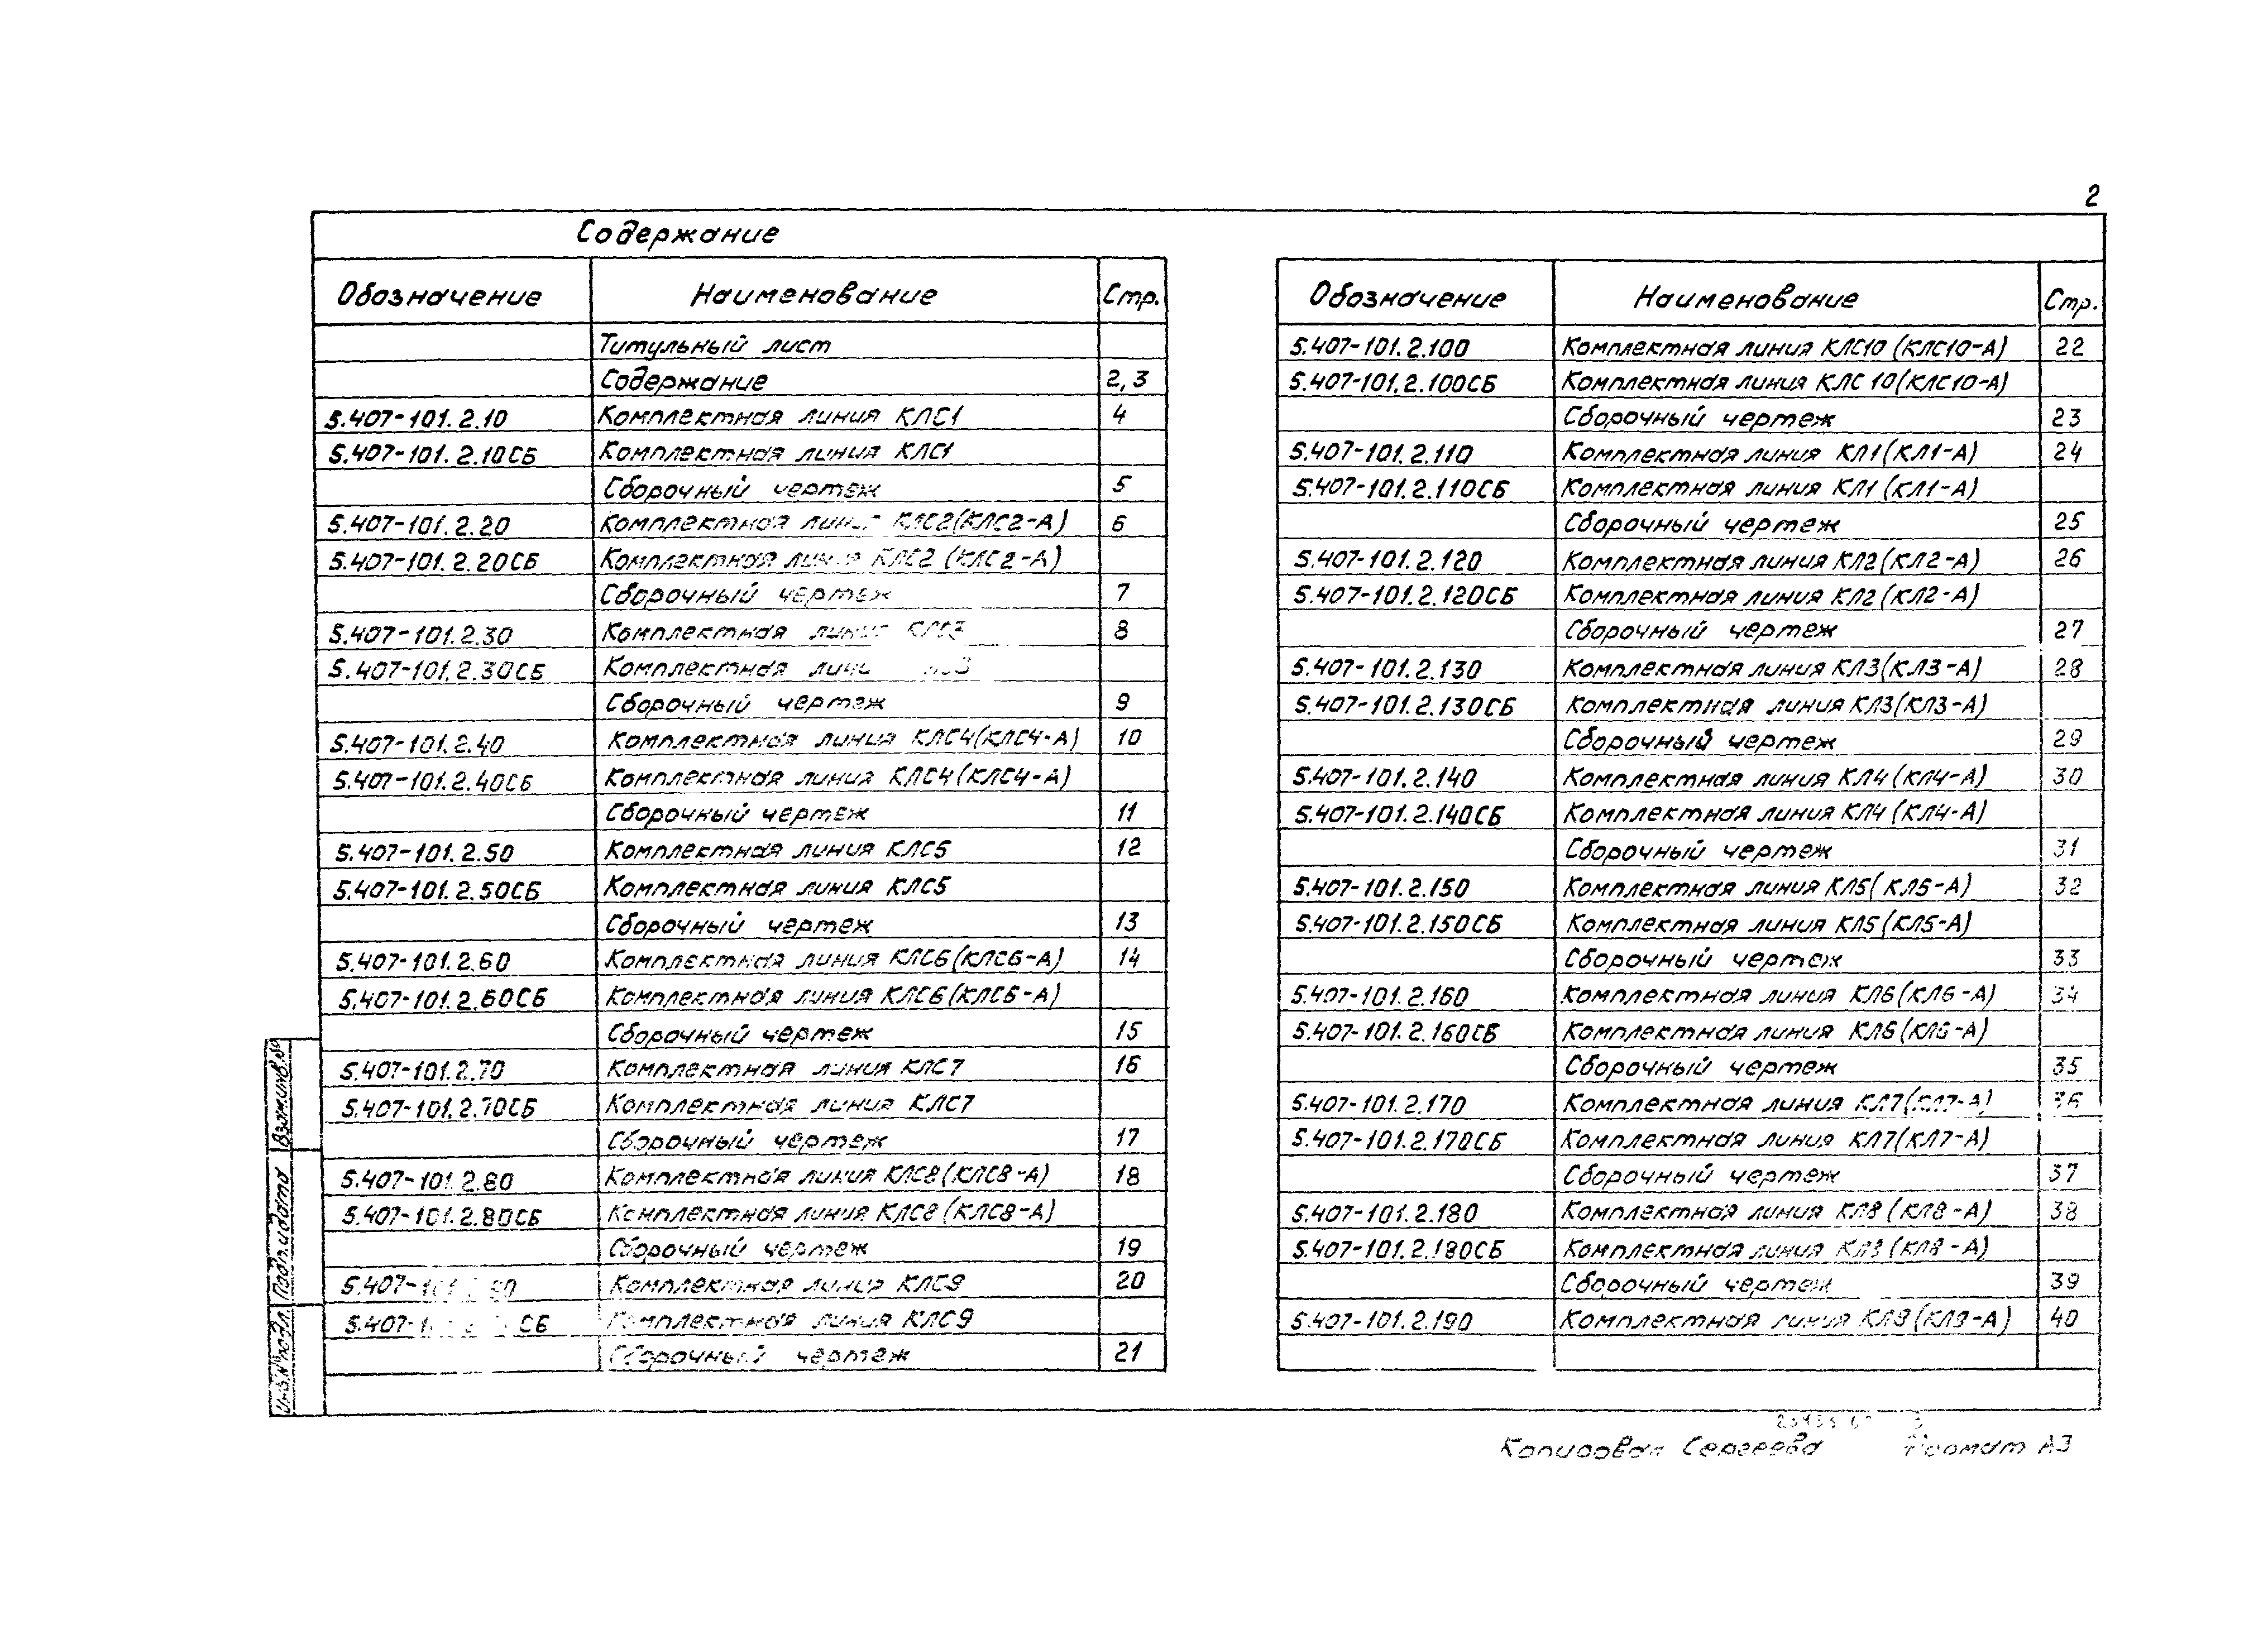 2
Содержание
Обозначение Наименование Стр.
Титульный лист
Содержание 2,3
5.407-101.2.10 Комплектная линия КЛС1 4
5.407-101.2.10СБ Комплектная линия КЛС1
Сборочный чертеж 5
5.407-101.2.20 Комплектная линия КЛС2(КЛС2-А) 6
5.407-101.2.20СБ Комплектная линия КЛС2 (КЛС2-А)
Сборочный чертеж 7
5.407-101.2.30 Комплектная линия КЛС3 8
5.407-101.2.30СБ Комплектная
Сборочный чертеж 9
5.407-101.2.40 Комплектная линия КЛС4(КЛС4-А) 10
5.407-101.2.40СБ Комплектная линия КЛС4(КЛС4-А)
Сборочный чертеж 11
5.407-101.2.50 Комплектная линия КЛС5 12
5.407-101.2.50СБ Комплектная линия КЛС5
Сборочный чертеж 13
5.407-101.2.60 Комплектная линия КЛС6(КЛС6-А) 14
5.407-101.2.60СБ Комплектная линия КЛС6(КЛС6-А)
Сборочный чертеж 15
5.407-101.2.70 Комплектная линия КЛС7 16
5.407-101.2.70СБ Комплектная линия КЛС7
Сборочный чертеж 17
5.407-101.2.80 Комплектная линия КЛС8(КЛС8-А) 18
5.407-101.2.80СБ Комплектная линия КЛС8(КЛС8-А)
Сборочный чертеж 19
Комплектная линия КЛС9 20
Комплектная линия КЛС9
Сборочный чертеж 21
Обозначение Наименование Стр.
5.407-101.2.100 Комплектная линия КЛС10 (КЛС10-А) 22
5.407-101.2.100СБ Комплектная линия КЛС10(КЛС10-А)
Сборочный чертеж 23
5.407-101.2.110 Комплектная линия КЛ1(КЛ1-А) 24
5.407-101.2.110СБ Комплектная линия КЛ1 (КЛ1-А)
Сборочный чертеж 25
5.407-101.2.120 Комплектная линия КЛ2(КЛ2-А) 26
5.407-101.2.120СБ Комплектная линия КЛ2(КЛ2-А)
Сборочный чертеж 27
5.407-101.2.130 Комплектная линия КЛ3(КЛ3-А) 28
5.407-101.2.130СБ Комплектная линия КЛ3(КЛ3-А)
Сборочный чертеж 29
5.407-101.2.140 Комплектная линия КЛ4(КЛ4-А) 30
5.407-101.2.140СБ Комплектная линия КЛ4(КЛ4-А)
Сборочный чертеж 31
5.407-101.2.150 Комплектная линия КЛ5(КЛ5-А) 32
5.407-101.2.150СБ Комплектная линия КЛ5(КЛ5-А)
Сборочный чертеж 33
5.407-101.2.160 Комплектная линия КЛ6(КЛ6-А) 34
5.407-101.2.160СБ Комплектная линия КЛ6(КЛ6-А)
Сборочный чертеж 35
5.407-101.2.170 Комплектная линия КЛ7(КЛ7-А) 36
5.407-101.2.170СБ Комплектная линия КЛ7(КЛ7-А)
Сборочный чертеж 37
5.407-101.2.180 Комплектная линия КЛ8(КЛ8-А) 38
5.407-101.2.180СБ Комплектная линия КЛ8(КЛ8-А)
Сборочный чертеж 39
5.407-101.2.190 Комплектная линия КЛ9(КЛ9-А) 40
Взам.инв.№
Подп.и дата
Инв.№подл.
Копировал Сергеева Формат А3